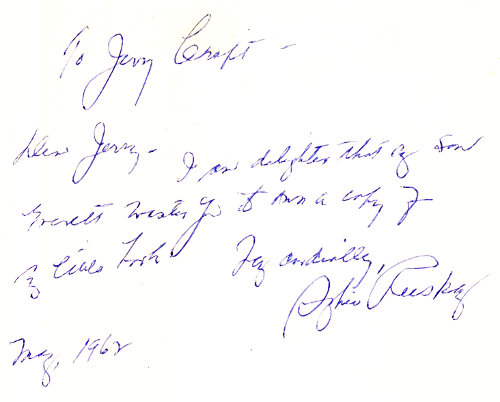 To Jerry Craft –
Dear Jerry – I am delighted that my son
Everett wants you to own a copy of
my little book. Very cordially,
May, 1962